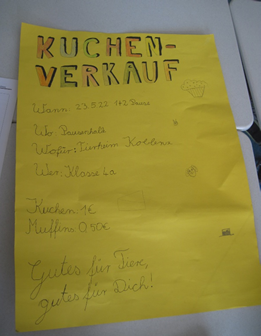 KUCHEN-
VERKAUF
Wann 23.5.22 1+2 Pause
Wo Pausenhalle
Wofür: Tierheim Koblenz
Wer: Klasse 6a
Kuchen 1€
Muffins 0,50€
Gutes für Tiere,
gutes für Dich!